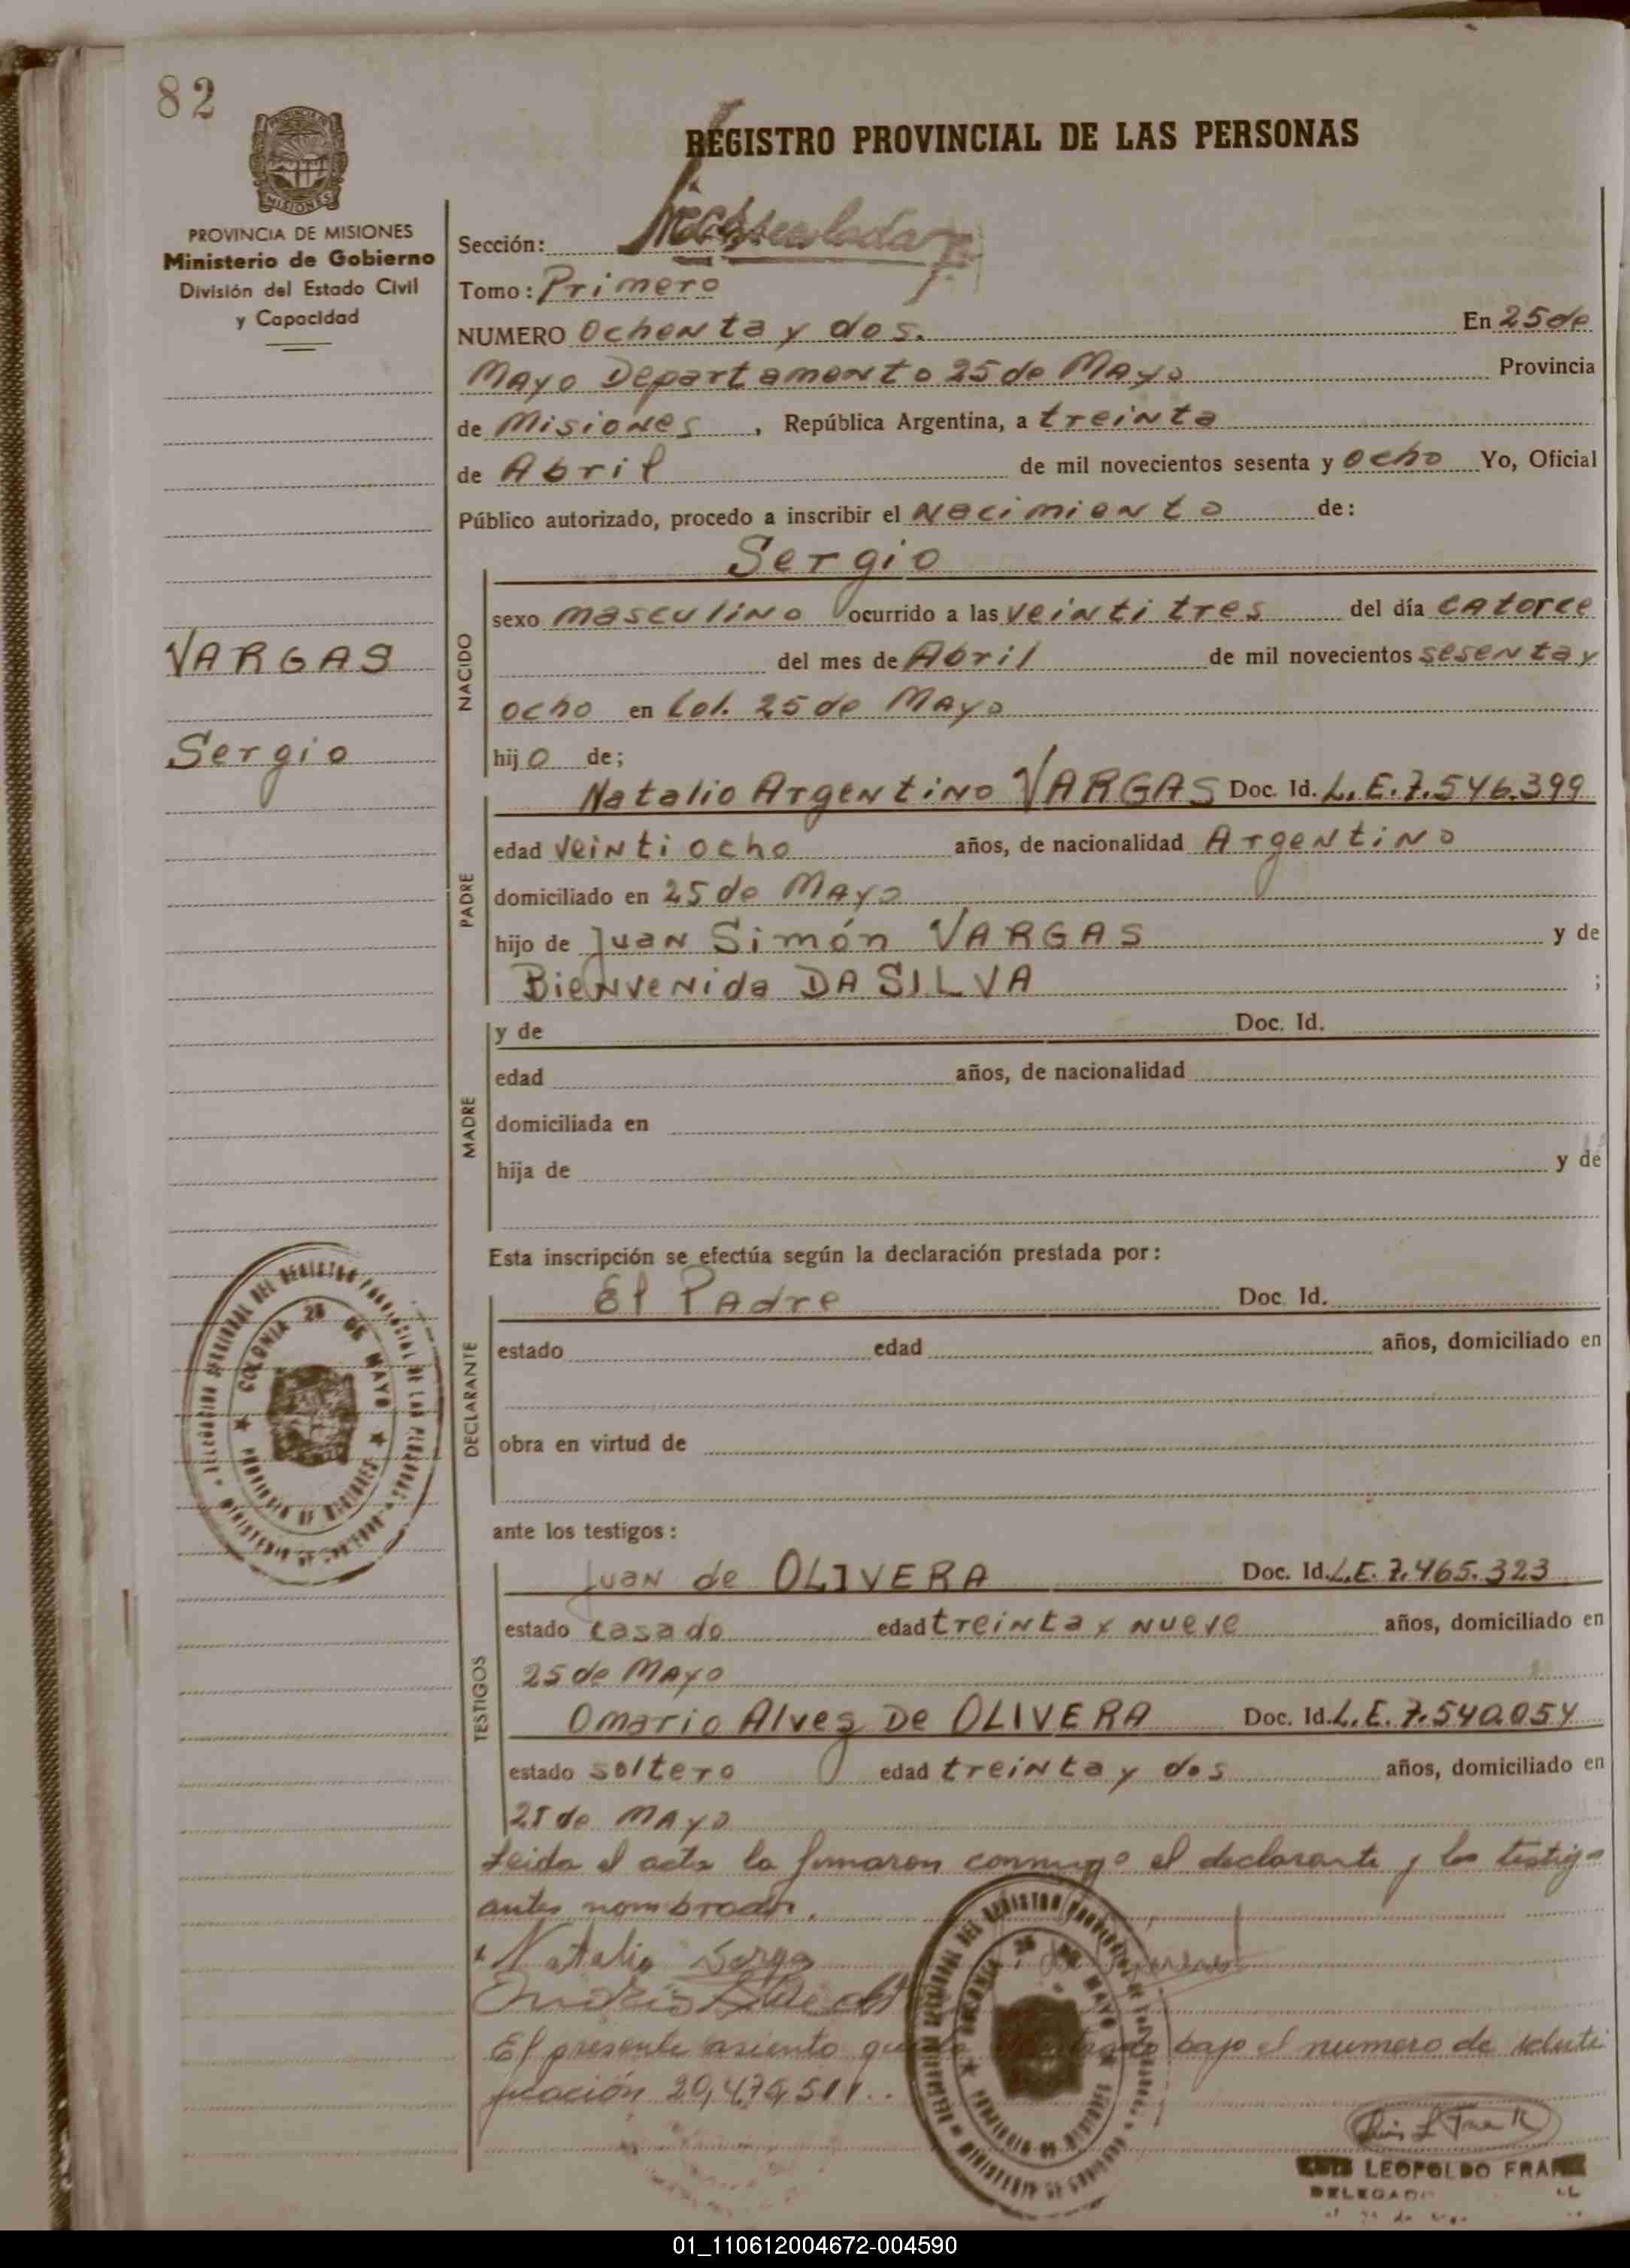 82
REGISTRO PROVINCIAL DE LAS PERSONAS
PROVINCIA DE MISIONES
Ministerio de Gobierno
División del Estado Civil
y Capacidad
Sección:
Tomo: Primero
NUMERO Ochenta y dos. En 25 de
Mayo Departamento 25 de Mayo Provincia
de Misiones, República Argentina, a treinta
de Abril de mil novecientos sesenta y ocho Yo, Oficial
Público autorizado, procedo a inscribir el Nacimiento de:
Sergio
NACIDO
sexo masculino ocurrido a las veintitres del día catorce
del mes de Abril de mil novecientos sesenta y
ocho en Col. 25 de Mayo
hijo de;
VARGAS
Sergio
PADRE
Natalio Argentino VARGAS Doc. Id. L.E. 7.546.399
edad veintiocho años, de nacionalidad Argentino
domiciliado en 25 de Mayo
hijo de Juan Simón VARGAS y de
Bienvenida DA SILVA ;
MADRE
y de Doc. Id.
edad años, de nacionalidad
domiciliada en
hija de y de
Esta inscripción se efectúa según la declaración prestada por:
DECLARANTE
El Padre Doc. Id.
estado edad años, domiciliado en
obra en virtud de
DELEGACION SECCIONAL DEL REGISTRO PROVINCIAL DE LAS PERSONAS
COLONIA 25 DE MAYO
PROVINCIA DE MISIONES
MINISTERIO DE GOBIERNO
ante los testigos:
TESTIGOS
Juan de OLIVERA Doc. Id. L.E. 7.465.323
estado casado edad treinta y nueve años, domiciliado en
25 de Mayo
Omario Alvez De OLIVERA Doc. Id. L.E. 7.540.054
estado soltero edad treinta y dos años, domiciliado en
25 de Mayo
Leida el acta la firmaron conmigo el declarante y los testigos
antes nombrados.
Natalio
El presente asiento bajo el numero de identi
ficación
LEOPOLDO
DELEGADO
01_110612004672-004590